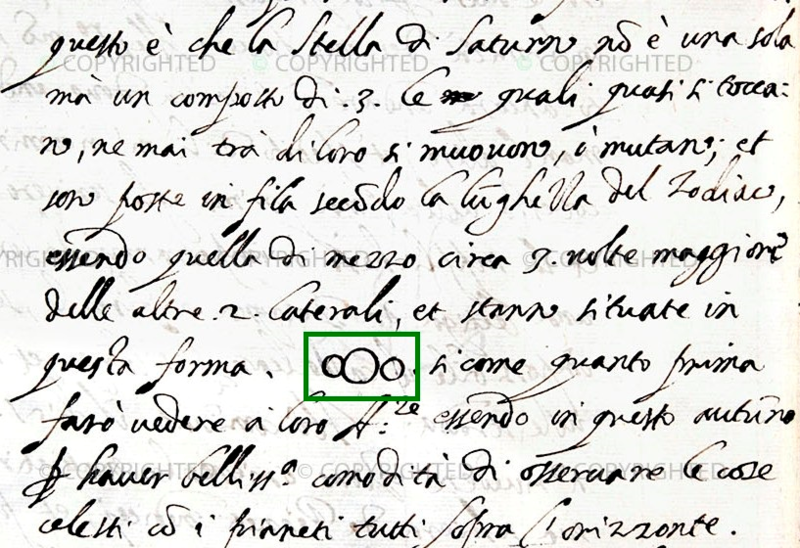 questo è che la stella di Saturno nõ è una sola
mà un composto di .3. le quali quasi si tocca:
no, ne mai trà di loro si muovono, ò mutano; et
sono poste in fila secõdo la lũghezza del zodiaco,
essendo quella di mezzo circa 3. volte maggiore
delle altre .2. laterali, et stanno situate in
questa forma. oOo. si come quanto prima
farò vedere à loro A.ze essendo in questo autũno
ꝑ haver belliss.a comodità di osservare le cose
celesti cõ i pianeti tutti sopra l'orizzonte.